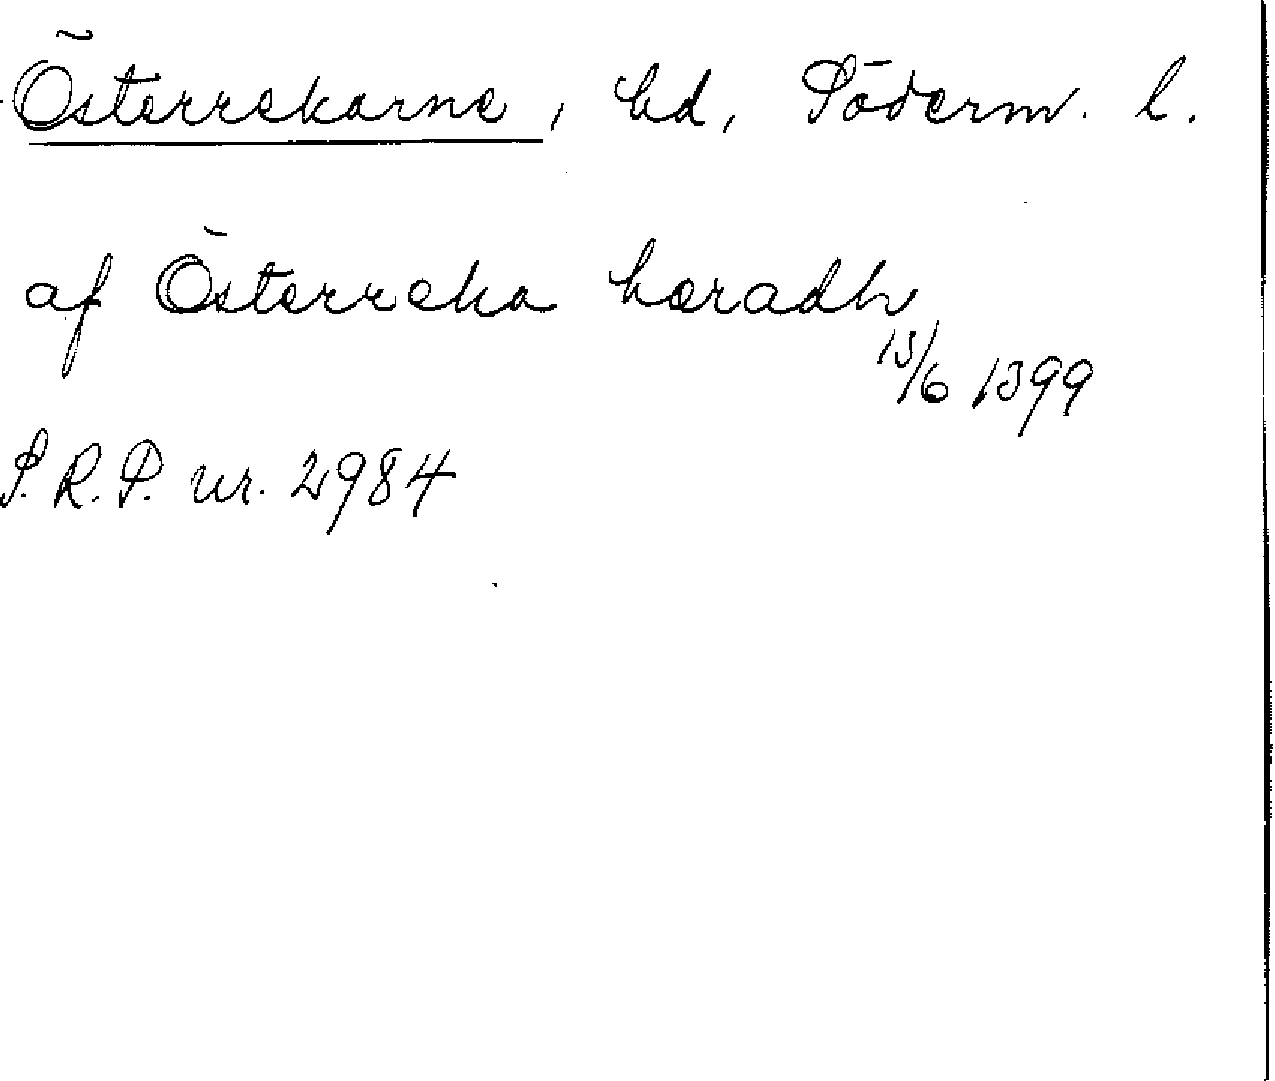 Österrekarne, hd, Söderm. l.
af Österreka hæradh
13/6 1399
S.R.P. nr. 2984